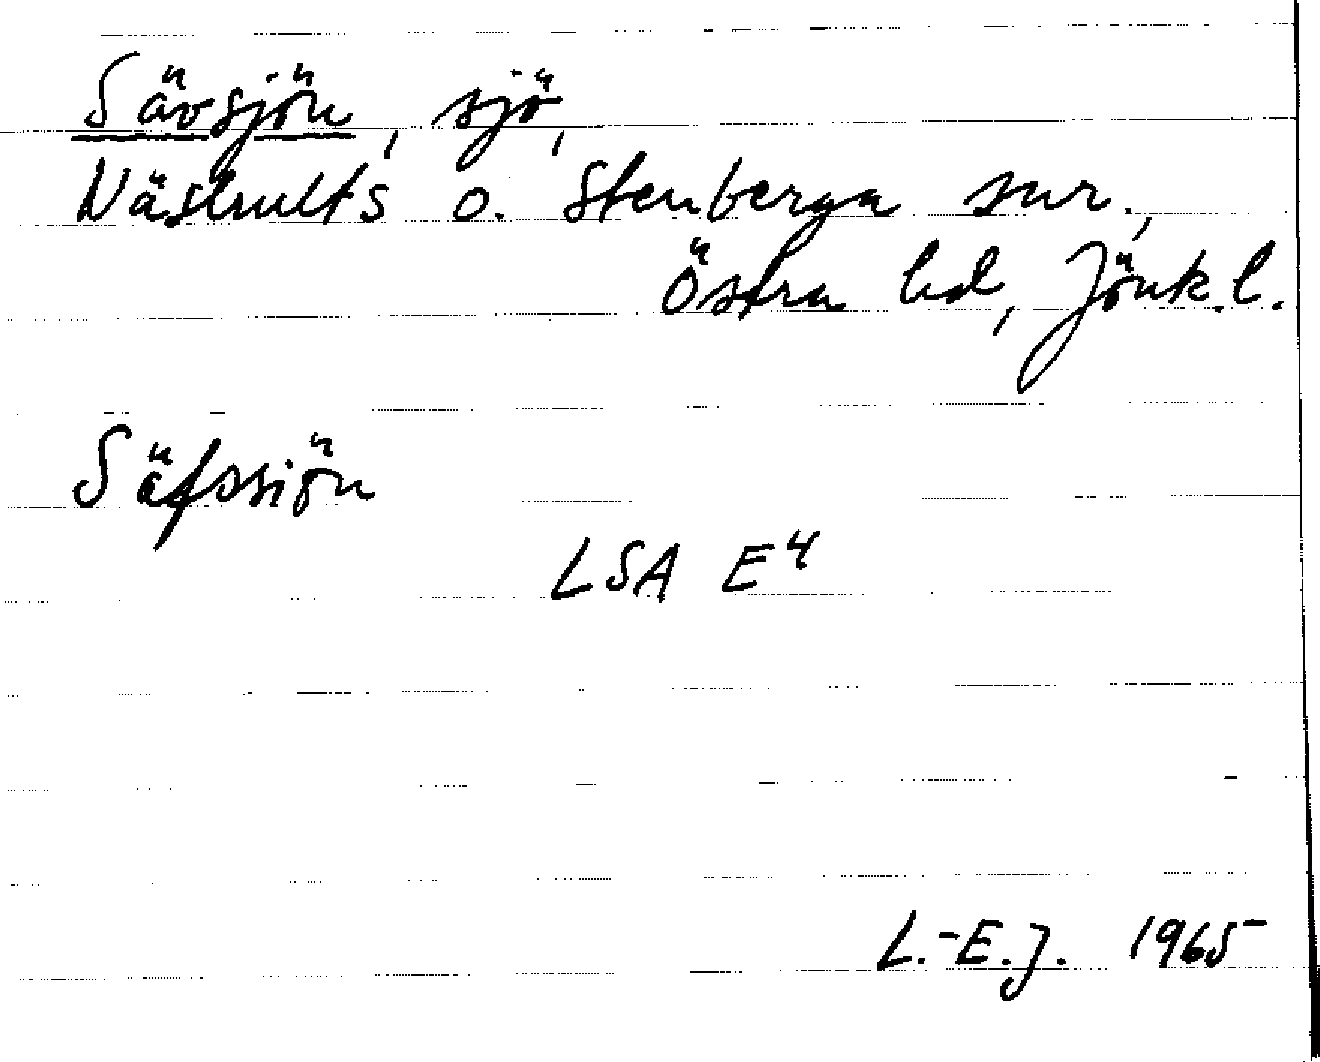 Sävsjön, sjö,
Näshults o. Stenberga snr.,
Östra hd, Jönk. l.
Säfssiön
LSA E4
L.-E.J. 1965